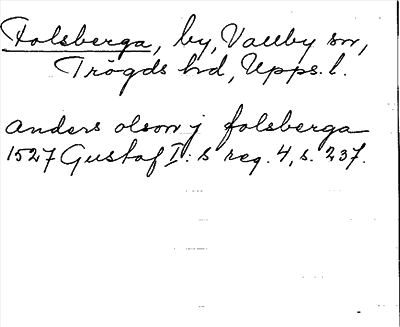 Folsberga, by, Vallby sn,
Trögds hd, Upps. l.
anders olson j folsberga
1527 Gustaf I:s reg. 4, s. 237.